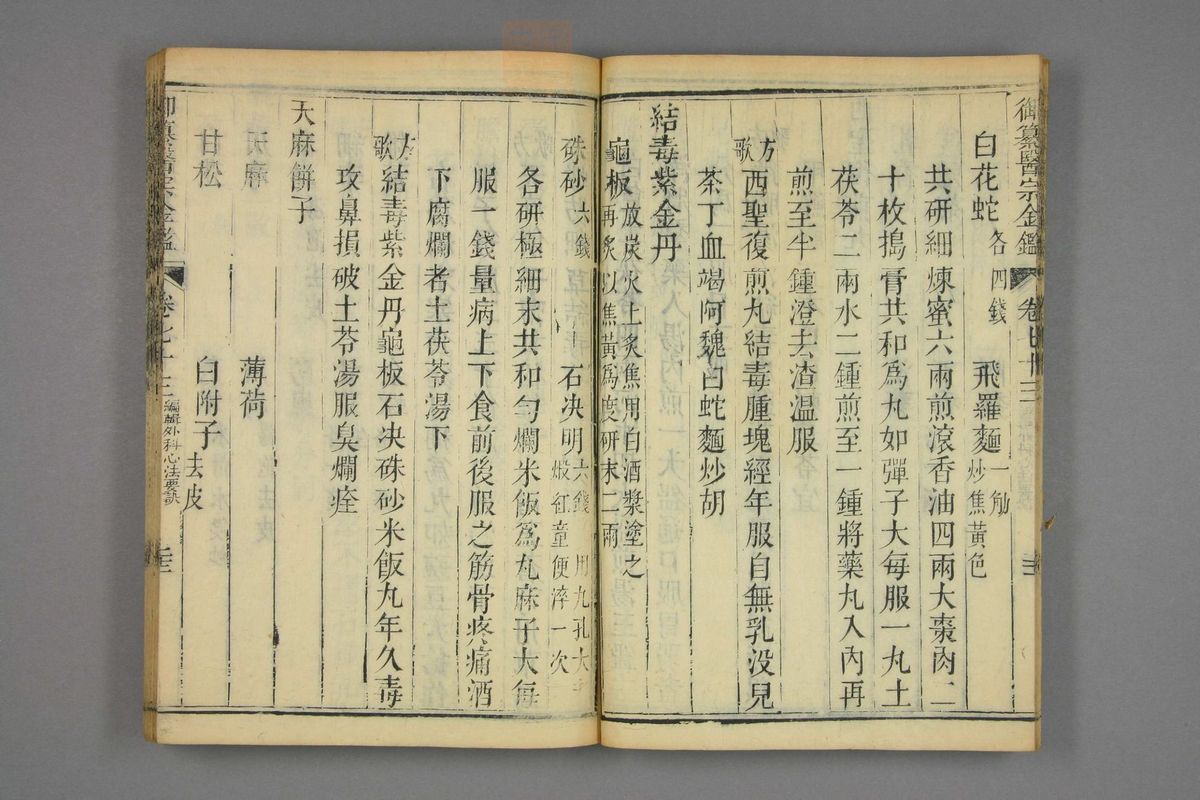 御纂醫宗金鑑 卷七十三 三
白花蛇各四錢 飛羅麵一觔炒焦黃色
共研細煉蜜六兩煎滾香油四兩大棗肉二
十枚搗膏共和爲丸如彈子大每服一丸土
茯苓二兩水二鍾煎至一鍾將藥丸入內再
煎至半鍾澄去渣溫服
方歌 西聖復煎丸結毒腫塊經年服自無乳沒兒
茶丁血竭阿魏白蛇麵炒胡
結毒紫金丹
龜板放炭火上炙焦用白酒漿塗之再炙以焦黃爲度研末二兩
硃砂六錢 石决明六錢用九孔大煅紅童便淬一次
各研極細末共和勻爛米飯爲丸麻子大每
服一錢量病上下食前後服之筋骨疼痛酒
下腐爛者土茯苓湯下
方歌 結毒紫金丹龜板石决硃砂米飯丸年久毒
攻鼻損破土苓湯服臭爛痊
天麻餅子
天麻 薄荷
甘松 白附子去皮
御纂醫宗金鑑 卷七十三 編輯外科心法要訣